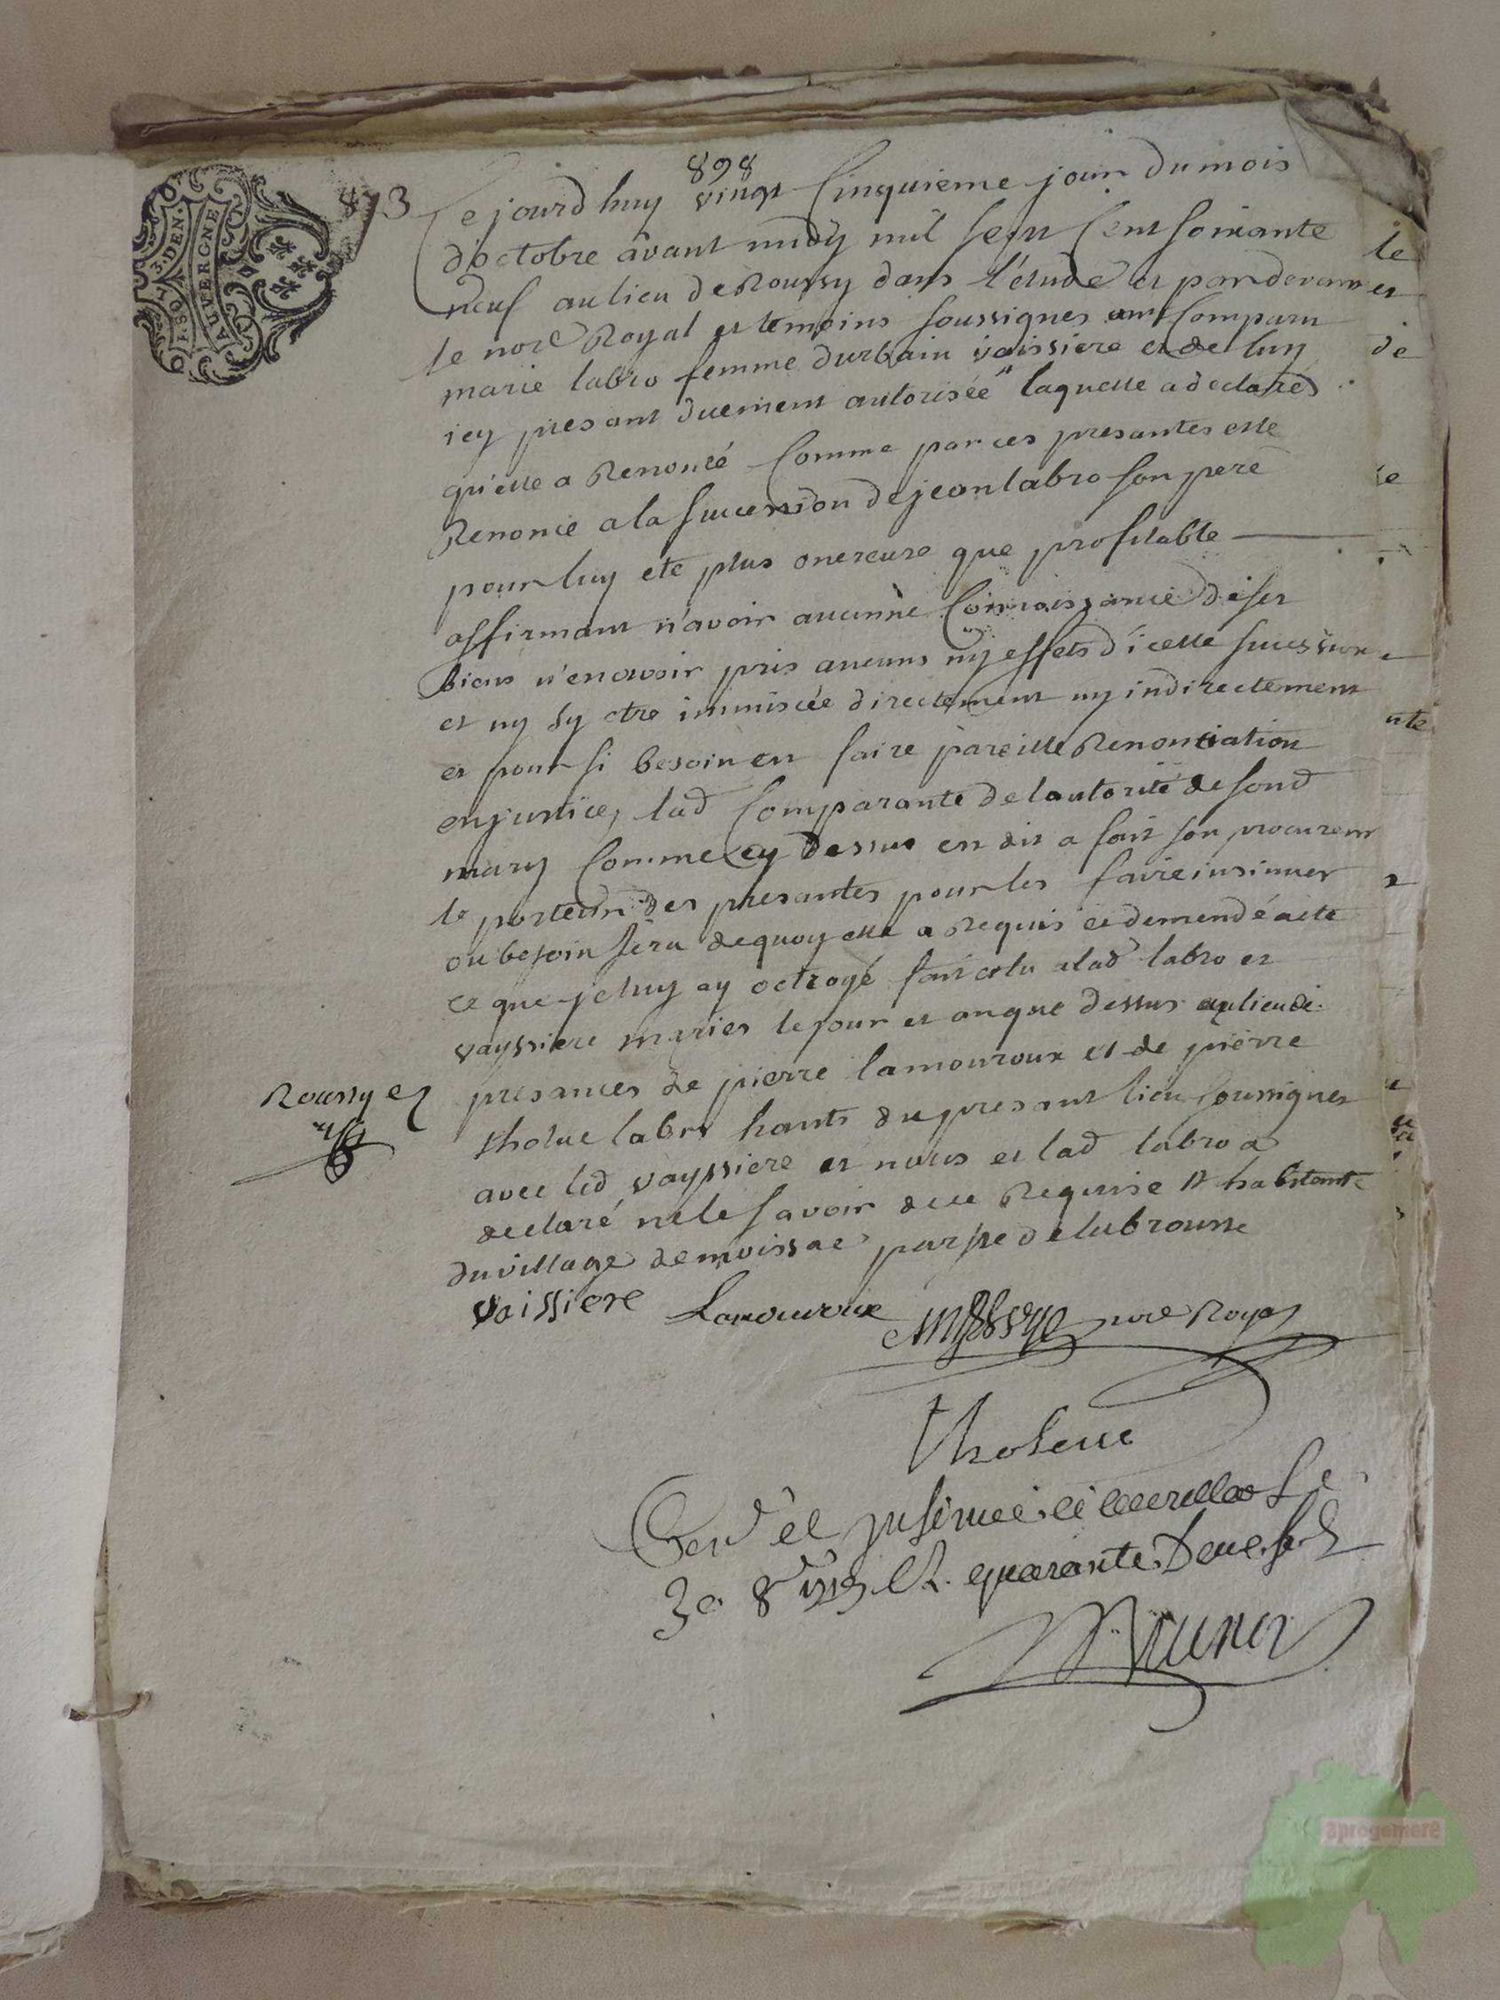 1 SOL 3 DEN.
AUVERGNE
873
898
Ce jourdhuy vingt Cinquieme jour du mois
d'octobre avant midy mil sept Cent soixante
neuf au lieu de Roussy dans l'étude et pardevant
le nore Royal et temoins soussignes Comparu
marie labro femme durbain vaissiere et de luy
icy presant duement autorisée laquelle a declaré
qu'elle a Renoncé Comme par ces presantes elle
Renonce a la succession de jean labro son pere
pour luy etc plus onereuse que profitable
affirmant n'avoir aucune Connoissance de ses
biens n'en avoir pris aucuns ny effets d'icelle succession
et ny sy etre immiscée directement ny indirectement
et pour si besoin en faire pareille Renonciation
en justice, lad Comparante de lautorité de sond
mary Comme cy dessus en dit a fait son procureur
le porteur des presantes pour les faire insinuer
ou besoin sera de quoy elle a Requis et demendé acte
ce que je luy ay octroyé fait et lu a lad labro et
vayssiere maries le jour et an que dessus au lieu de
Roussy et
presances de pierre lamouroux et de pierre
tholue labro hants du presant lieu soussignes
avec led vayssiere et nous et lad labro a
declaré ne le savoir de ce Requise # habitants
du village de moissac parsse de labrousse
vaissiere Lamouroux nore Royal
tholeuc
Con et insinué
30 8 1769 R. quarante Deux s
Brunet
le
et
de
3progomere